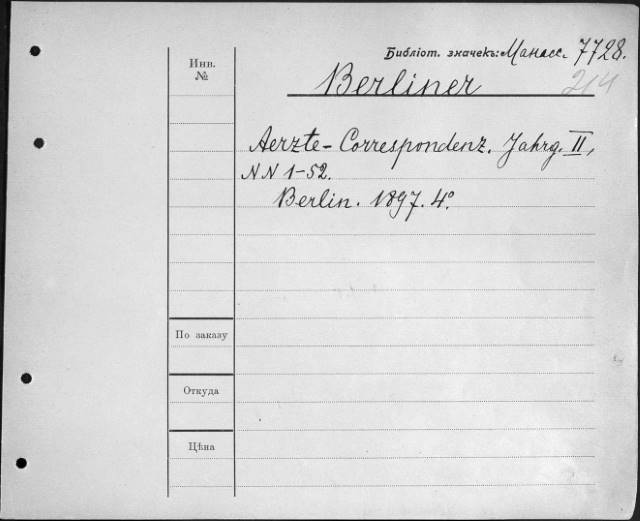 Библіот. значекъ: Манасс. 7728.
Инв.
№
Berliner
214
Aerzte-Correspondenz. Jahrg. II,
NN 1-52.
Berlin. 1897. 4°.
По заказу
Откуда
Цѣна